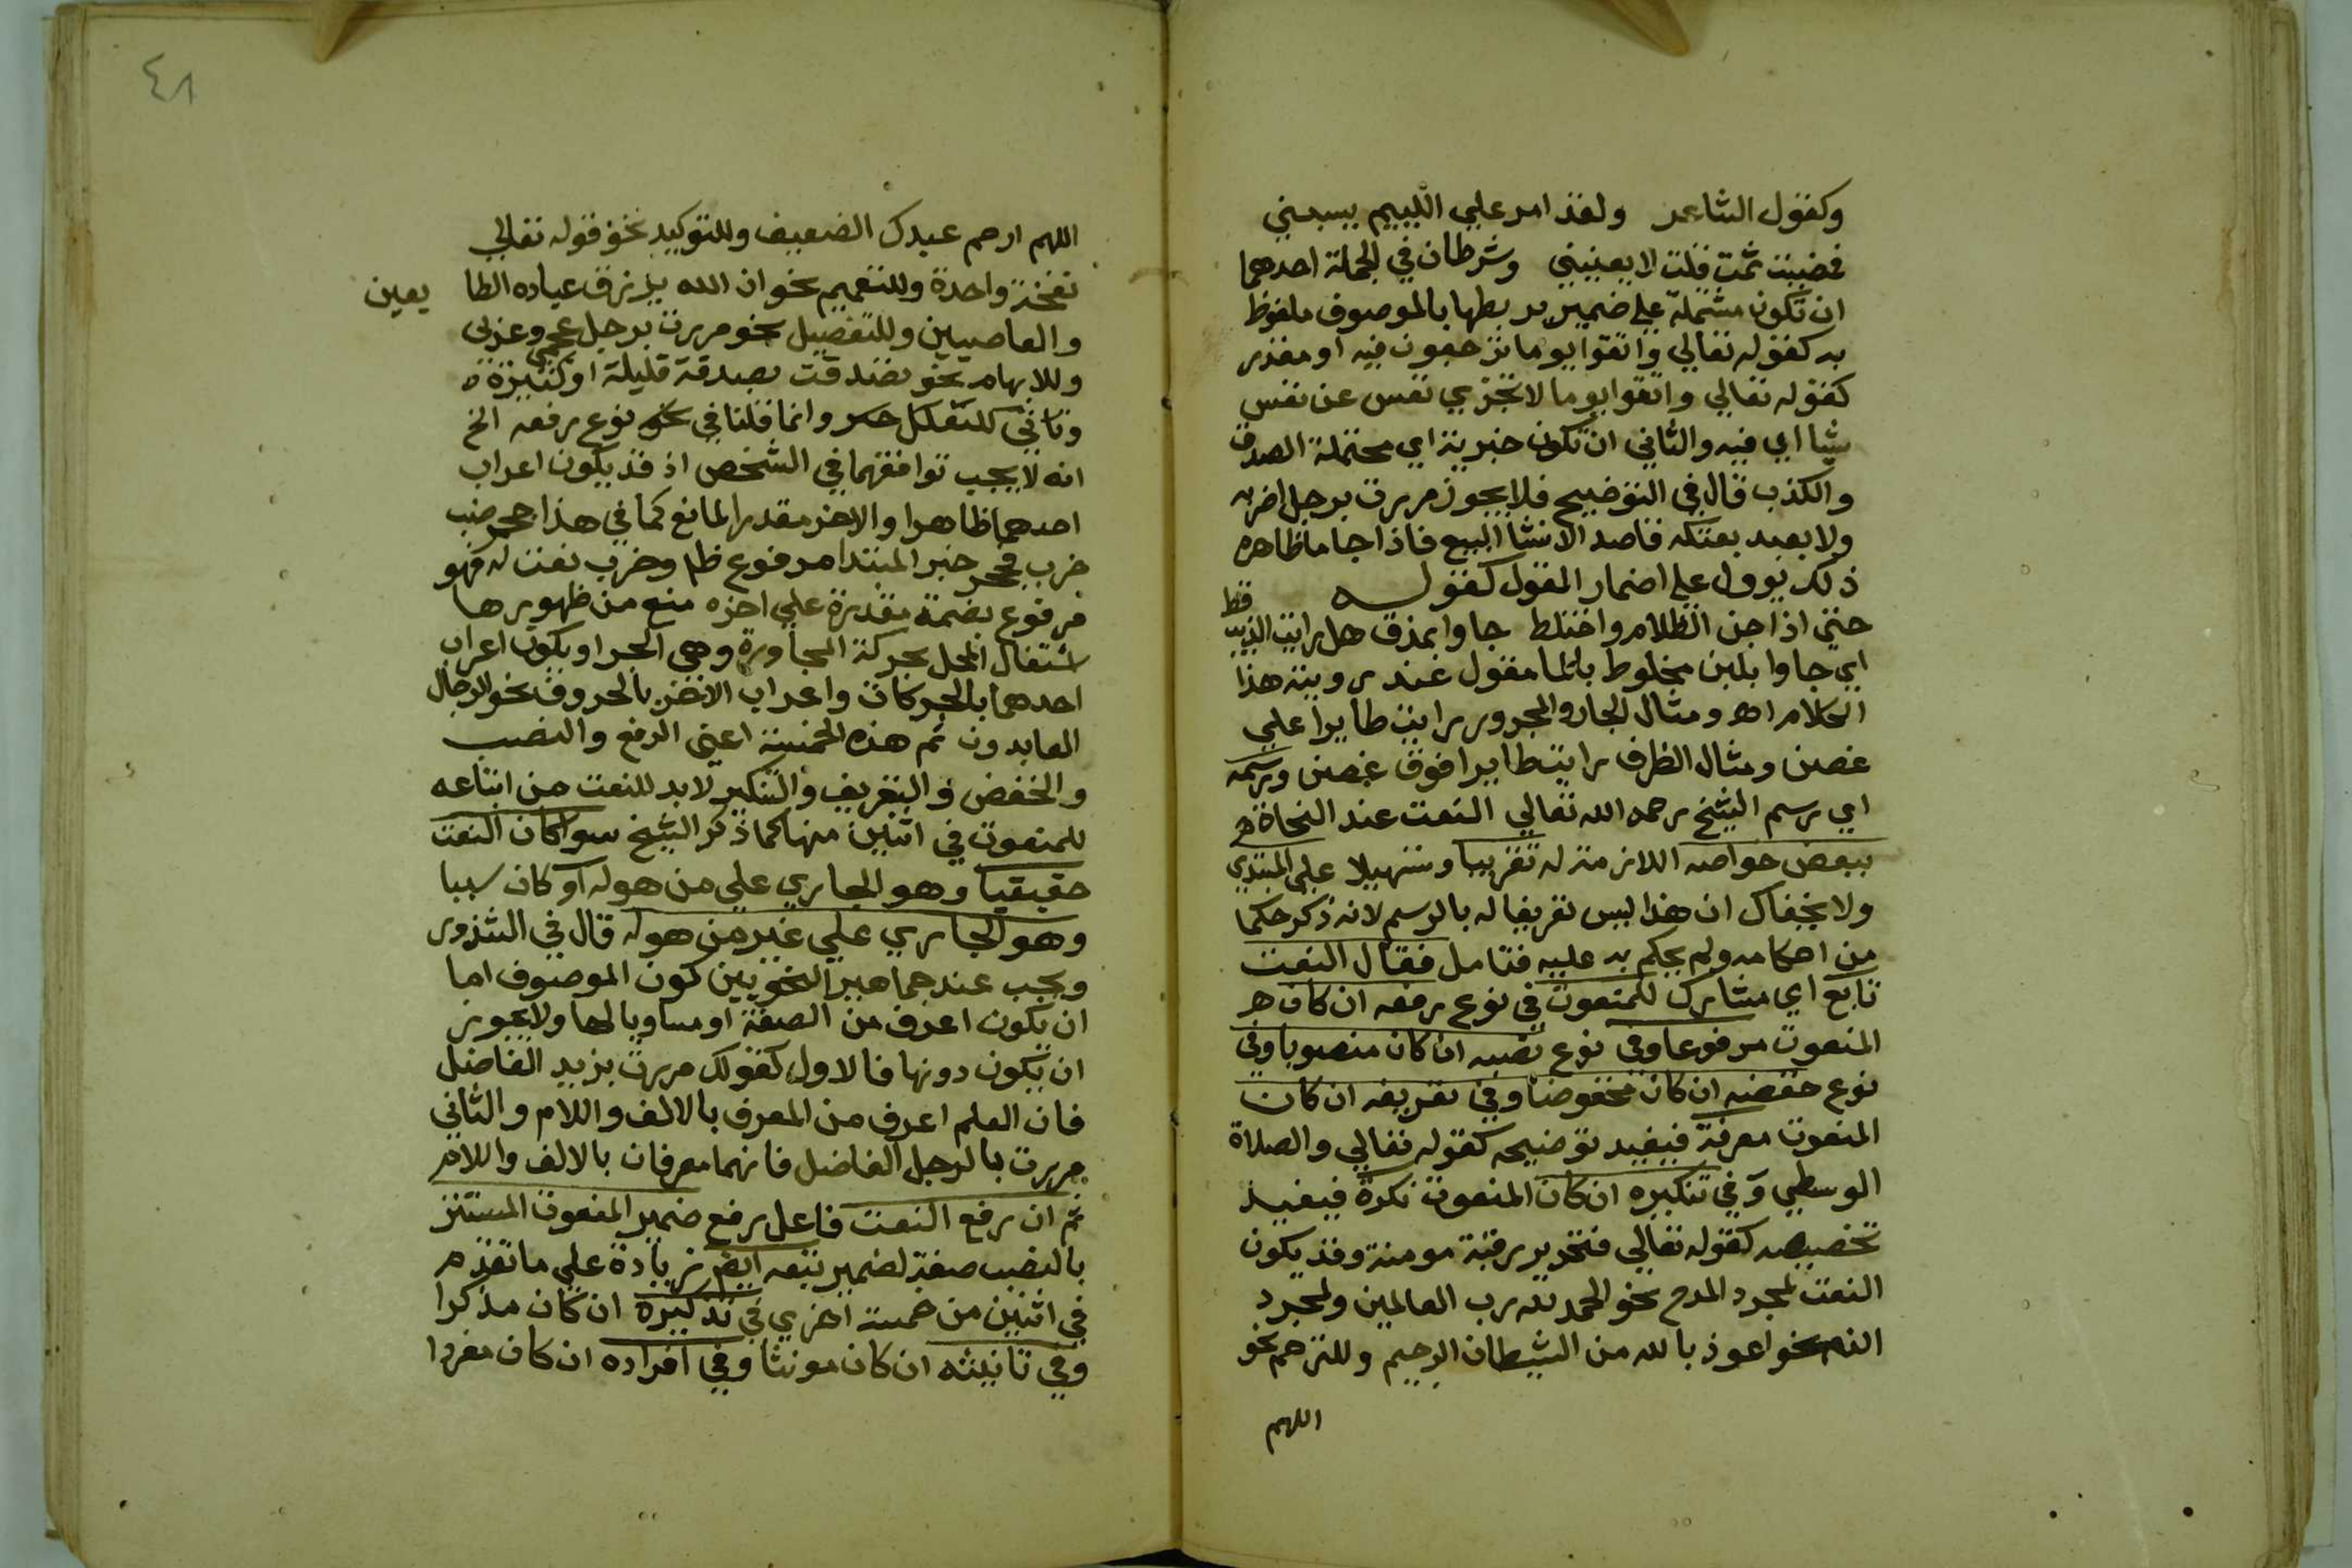 وكقول الشاعر ولقد امر علي اللييم يسبني
فمضيت ثمت قلت لا يعنيني وشرطان في الجملة احدهما
ان تكون مشتملة علي ضمير يربطها بالموصوف ملفوظ
به كقوله تعالي واتقوا يوما ترجعون فيه او مقدر
كقوله تعالي واتقوا يوما لا تجزي نفس عن نفس
شيا اي فيه والثاني ان تكون خبرية اي محتملة الصدق
والكذب قال في التوضيح فلا يجوز مررت برجل اضربه
ولا بعبد بعتكه قاصد الانشا البيع فاذا جا ما ظاهره
ذلك يوول علي اضمار القول كقوله
حتي اذا جن الظلام واختلط جاوا بمذق هل رايت الذيب قط
اي جاوا بلبن مخلوط بالما مقول عند رويته هذا
الكلام اه ومثال الجار والمجرور رايت طايرا علي
غصن ومثال الظرف رايت طايرا فوق غصن ورسمه
اي رسم الشيخ رحمه الله تعالي النعت عند النحاة
ببعض خواصه اللازمة له تقريبا وتسهيلا علي المبتدي
ولا يخفاك ان هذا ليس تعريفا له بالرسم لانه ذكر حكما
من احكامه ولم يحكم به عليه فتامل فقال النعت
تابع اي مشارك للمنعوت في نوع رفعه ان كان
المنعوت مرفوعا وفي نوع نصبه ان كان منصوبا وفي
نوع خفضه ان كان مخفوضا وفي تعريفه ان كان
المنعوت معرفة فيفيد توضيحه كقوله تعالي والصلاة
الوسطي وفي تنكيره ان كان المنعوت نكرة فيفيد
تخصيصه كقوله تعالي فتحرير رقبة مومنة وقد يكون
النعت لمجرد المدح نحو الحمد لله رب العالمين ولمجرد
الذم نحو اعوذ بالله من الشيطان الرجيم وللترحم نحو
اللهم
٤٨
اللهم ارحم عبدك الضعيف وللتوكيد نحو قوله تعالي
نفخة واحدة وللتعميم نحو ان الله يرزق عباده الطا يعين
والعاصيين وللتفصيل نحو مررت برجل عجمي وعربي
وللابهام نحو تصدقت بصدقة قليلة او كثيرة
وتاتي وانما قلنا في نحو نوع رفعه الخ
انه لا يجب توافقهما في الشخص اذ قد يكون اعراب
احدهما ظاهرا والاخر مقدرا لمانع كما في هذا حجر ضب
خرب فحجر خبر المبتدا مرفوع ظا وخرب نعت له فهو
مرفوع بضمة مقدرة علي اخره منع من ظهورها
اشتغال المحل بحركة المجاورة وهي الجر او يكون اعراب
احدهما بالحركات واعراب الاخر بالحروف نحو الرجال
العابدون ثم هذه الخمسة اعني الرفع والنصب
والخفض والتعريف والتنكير لا بد للنعت من اتباعه
للمنعوت في اثنين منها كما ذكر الشيخ سوا كان النعت
حقيقيا وهو الجاري علي من هو له او كان سببا
وهو الجاري علي غير من هو له قال في الشذور
ويجب عند جماهير النحويين كون الموصوف اما
ان يكون اعرف من الصفة او مساويا لها ولا يجوز
ان يكون دونها فالاول كقولك مررت بزيد الفاضل
فان العلم اعرف من المعرف بالالف واللام والثاني
مررت بالرجل الفاضل فانهما معرفان بالالف واللام
ثم ان رفع النعت فاعل رفع ضمير المنعوت المستتر
بالنصب صفة لضمير تبعه ايض زيادة علي ما تقدم
في اثنين من خمسة اخري في تذكيره ان كان مذكرا
وفي تانيثه ان كان مونثا وفي افراده ان كان مفردا